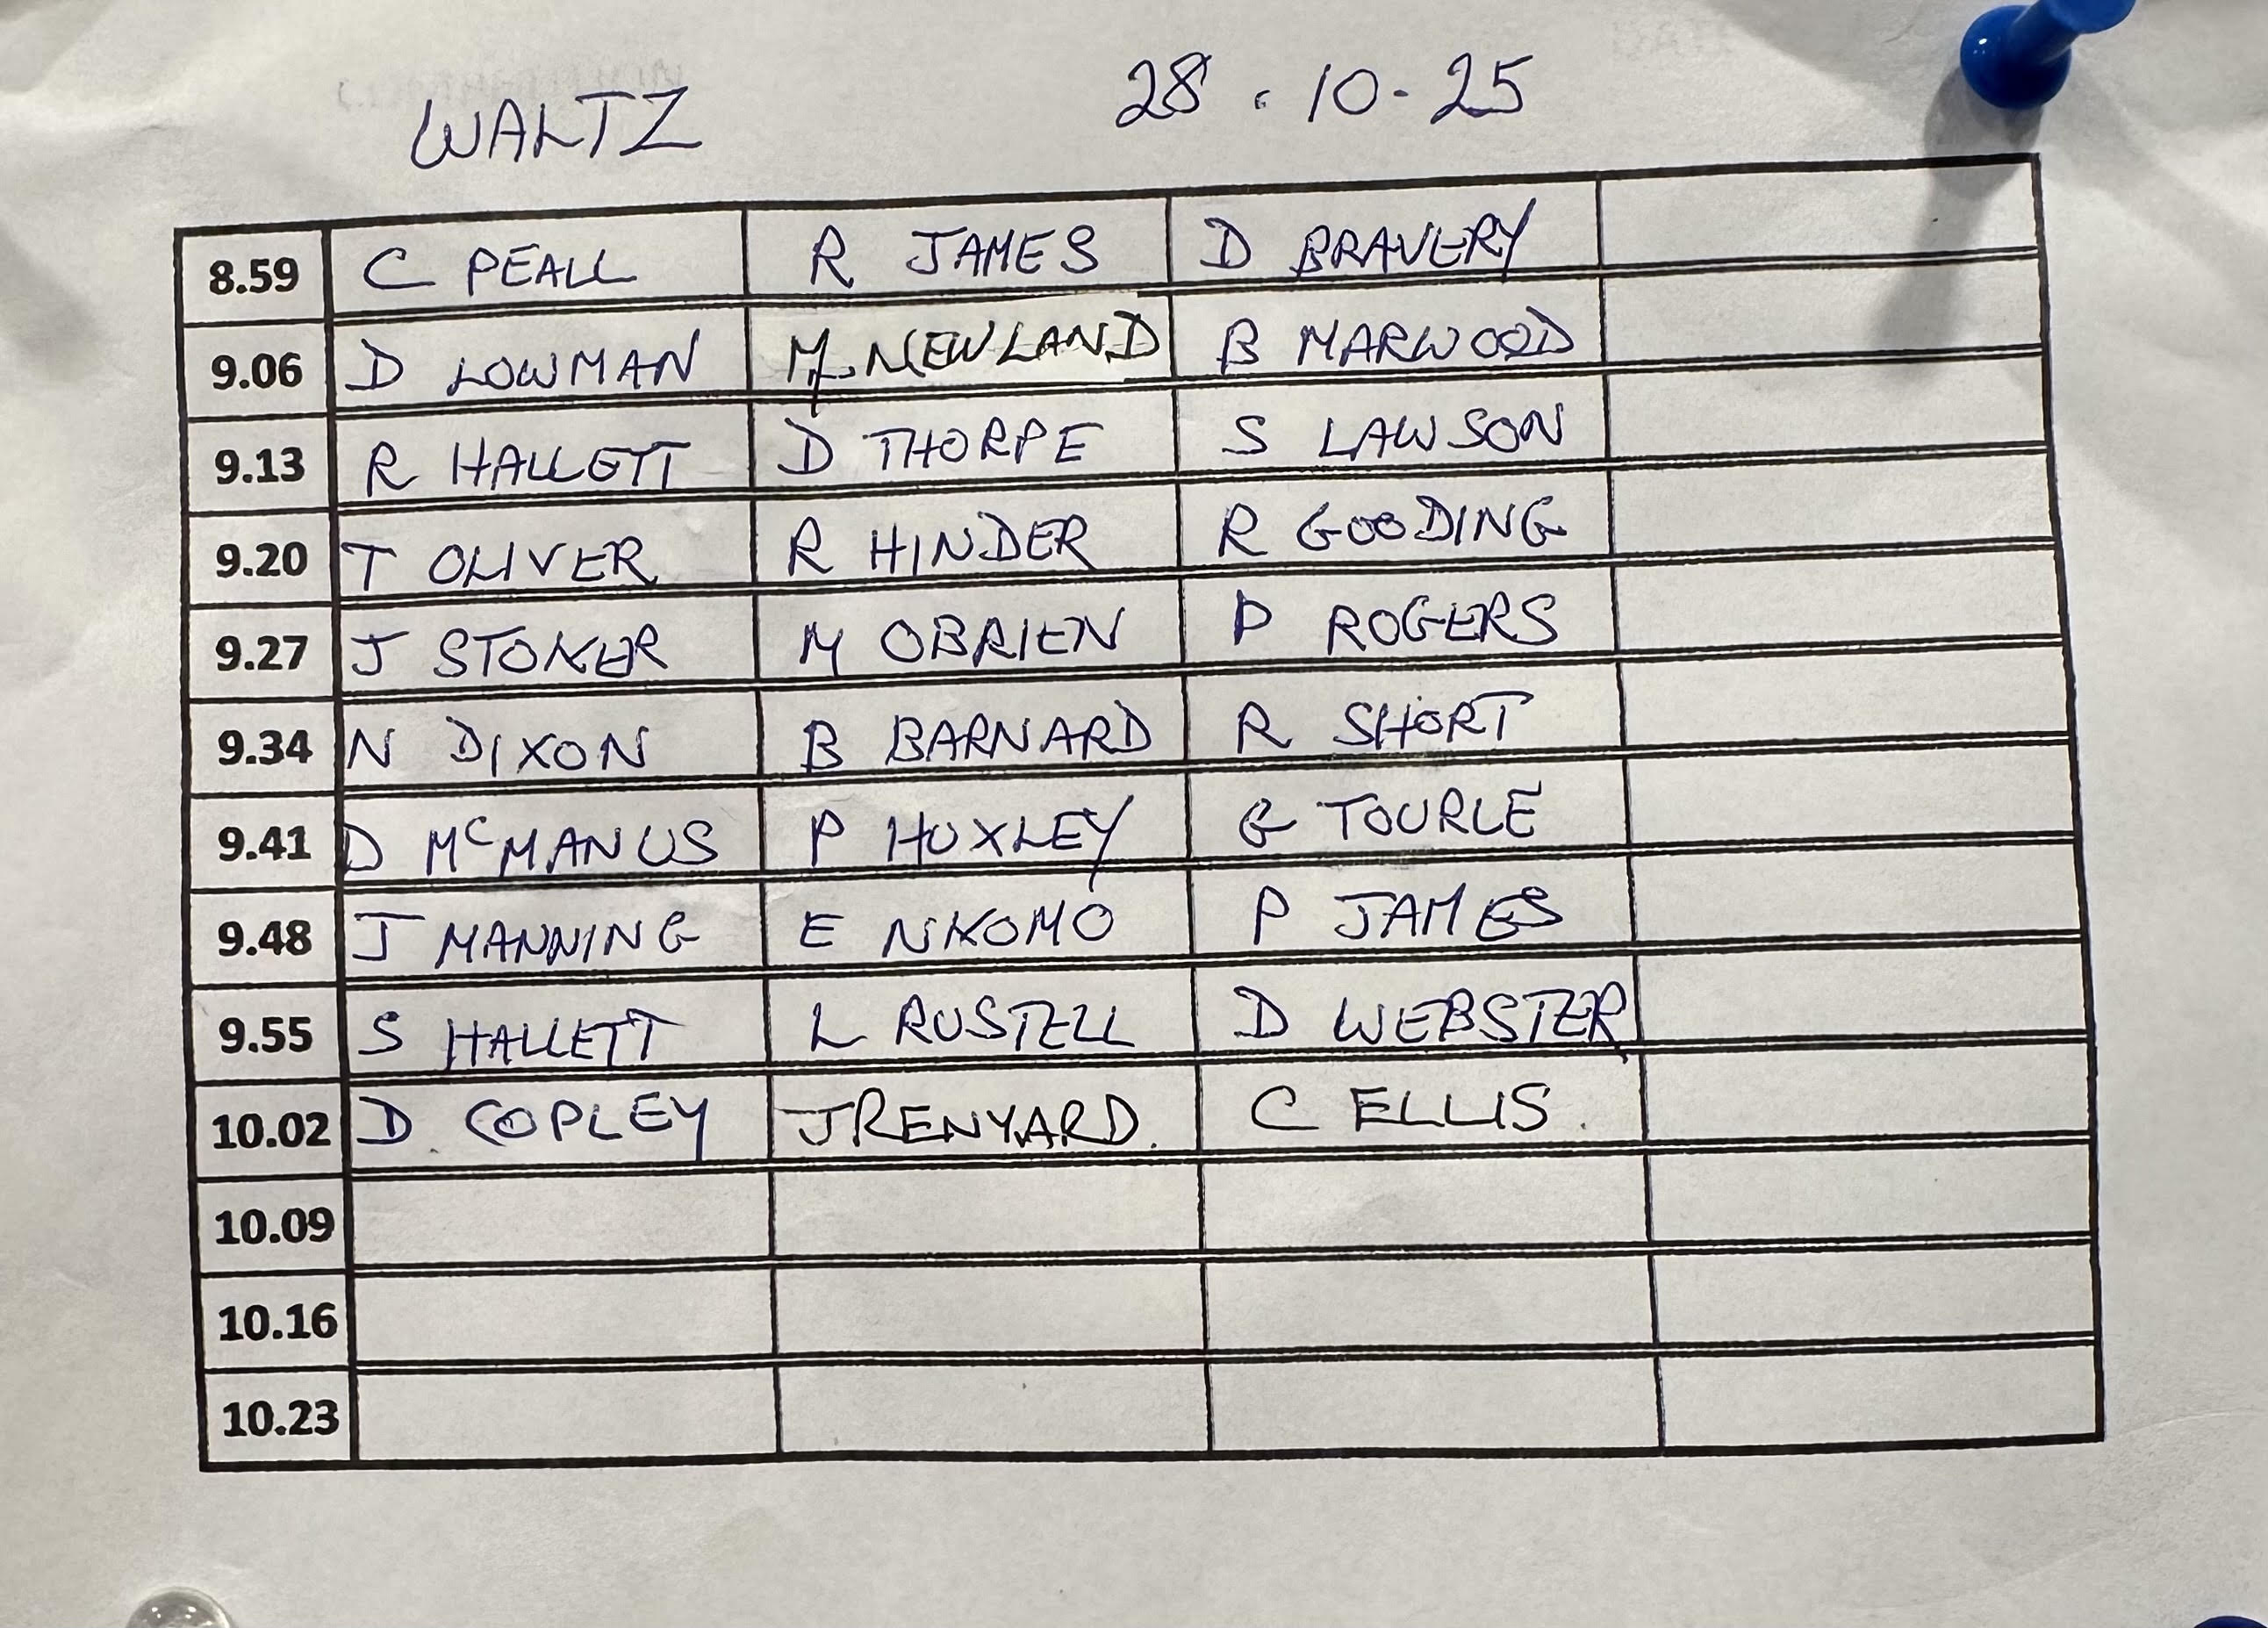 WALTZ 28.10-25
8.59 C PEALL R JAMES D BRAVERY
9.06 D LOWMAN M. NEWLAND B MARWOOD
9.13 R HALLETT D THORPE S LAWSON
9.20 T OLIVER R HINDER R GOODING
9.27 J STONER M OBRIEN P ROGERS
9.34 N DIXON B BARNARD R SHORT
9.41 D McMANUS P HUXLEY G TOURLE
9.48 J MANNING E NKOMO P JAMES
9.55 S HALLETT L RUSTELL D WEBSTER
10.02 D. COPLEY J RENYARD. C ELLIS.
10.09
10.16
10.23